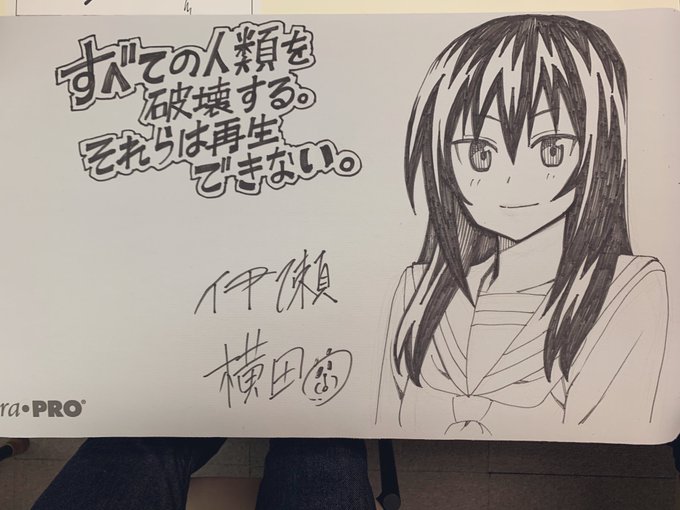 すべての人類を
破壊する。
それらは再生
できない。
伊瀬
横田
ra•PRO®